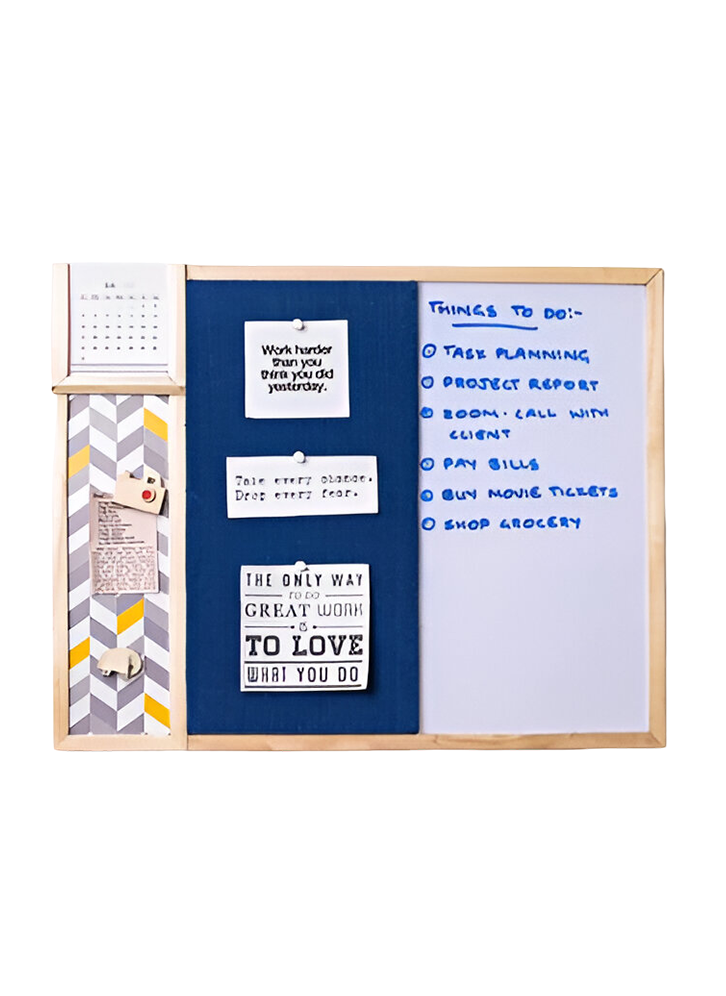 Work harder
than you
think you did
yesterday.
Take every chance.
Drop every fear.
THE ONLY WAY
TO DO
GREAT WORK
IS
TO LOVE
WHAT YOU DO
THINGS TO DO:-
TASK PLANNING
PROJECT REPORT
ZOOM. CALL WITH
CLIENT
PAY BILLS
BUY MOVIE TICKETS
SHOP GROCERY